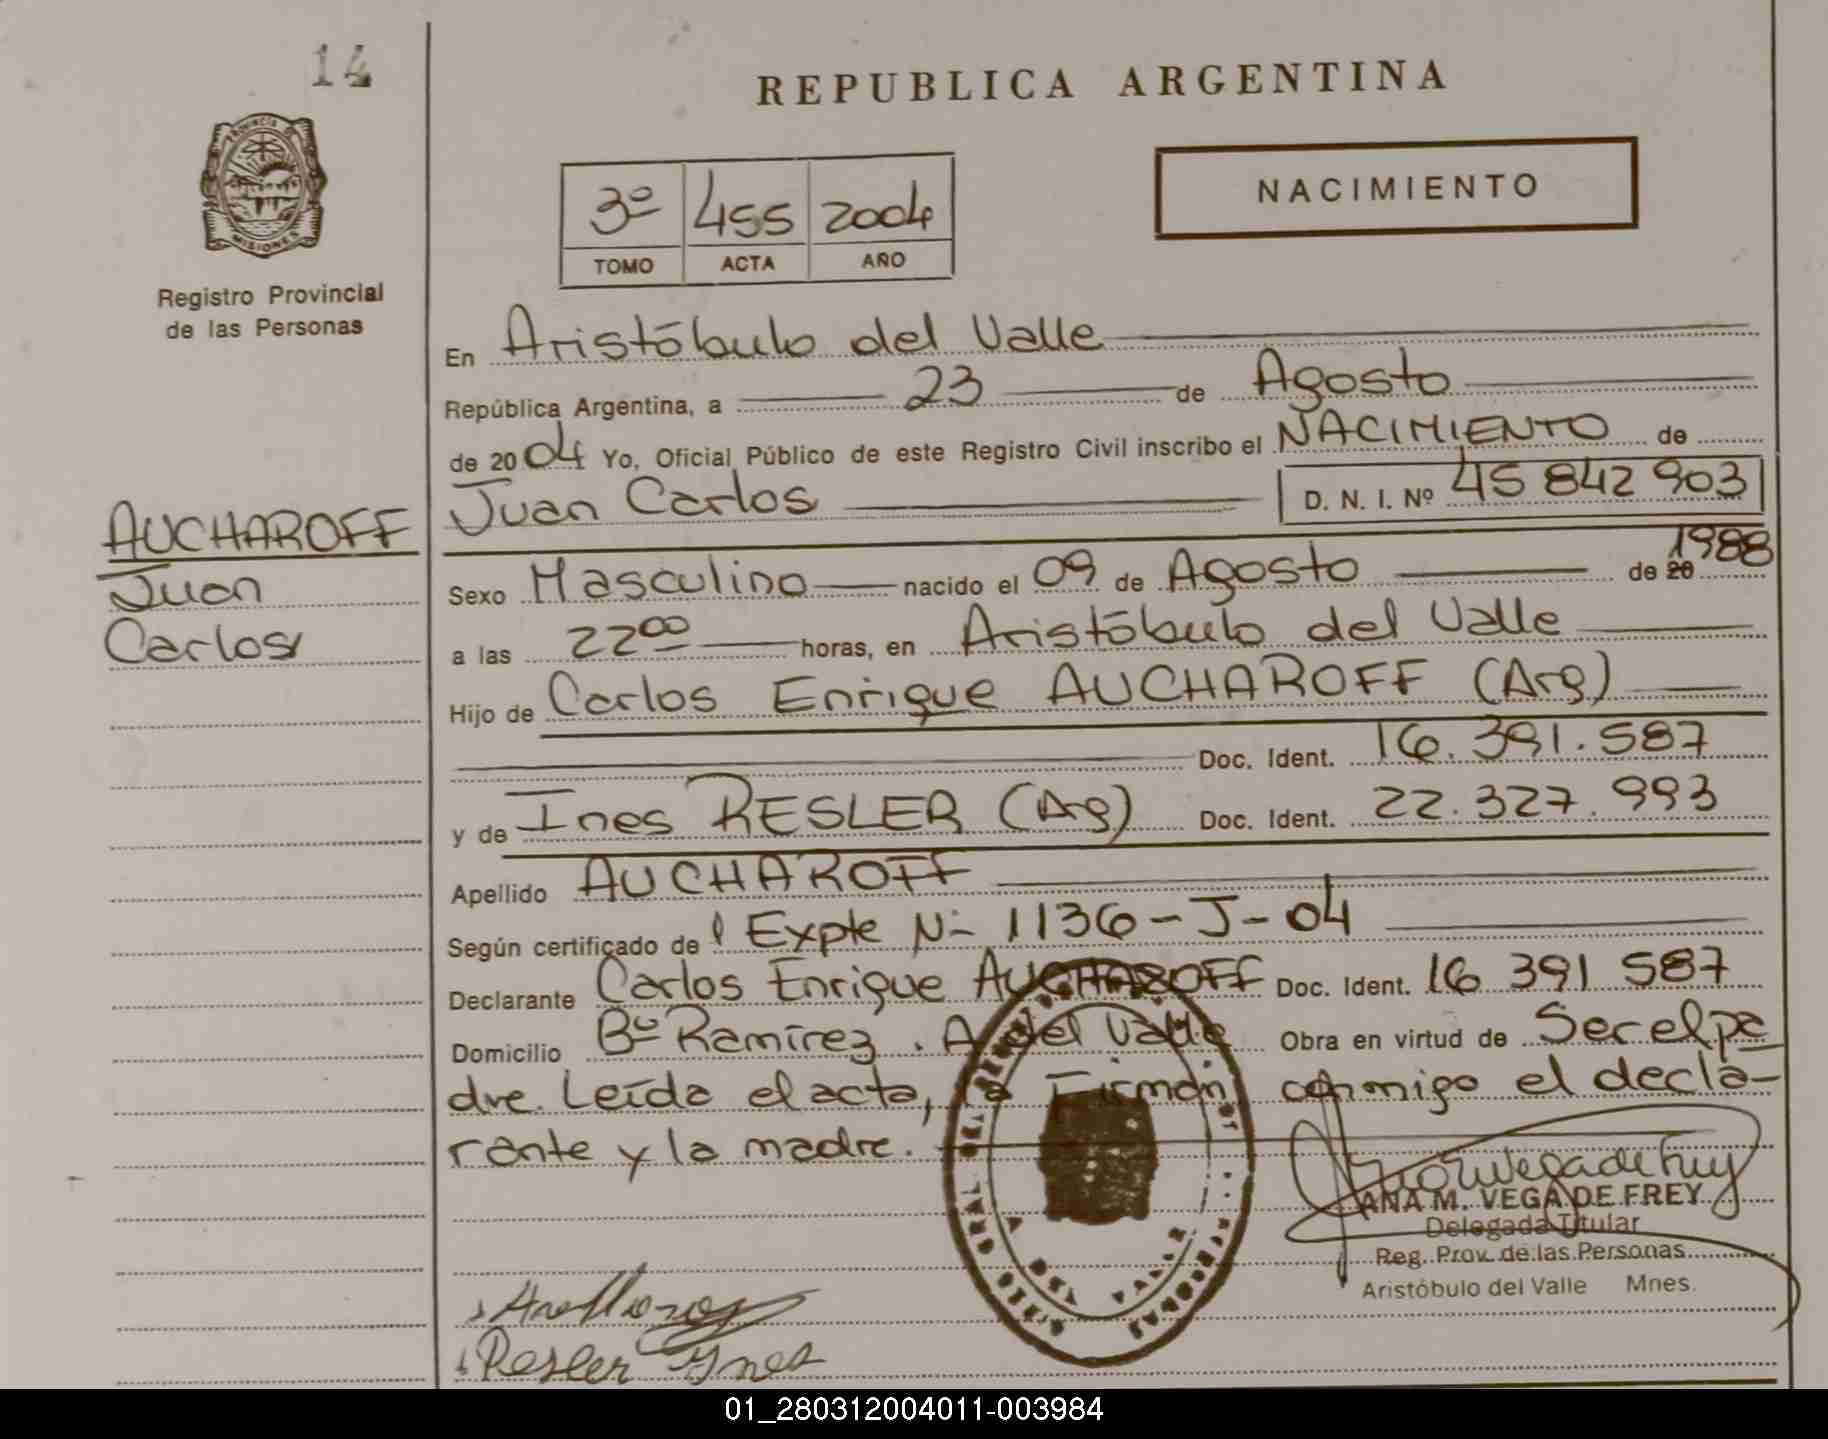 14
REPUBLICA ARGENTINA
PROVINCIA DE
MISIONES
Registro Provincial
de las Personas
3º 455 2004
TOMO ACTA AÑO
NACIMIENTO
En Aristóbulo del Valle
República Argentina, a 23 de Agosto
de 2004 Yo, Oficial Público de este Registro Civil inscribo el NACIMIENTO de
Juan Carlos D. N. I. Nº 45 842 903
AUCHAROFF
Juan
Carlos
Sexo Masculino nacido el 09 de Agosto de 20 1988
a las 22⁰⁰ horas, en Aristóbulo del Valle
Hijo de Carlos Enrique AUCHAROFF (Arg)
Doc. Ident. 16.391.587
y de Ines RESLER (Arg) Doc. Ident. 22.327.993
Apellido AUCHAROFF
Según certificado de Expte Nº 1136-J-04
Declarante Carlos Enrique AUCHAROFF Doc. Ident. 16 391 587
Domicilio Bº Ramírez. A del Valle Obra en virtud de Ser el pa
dre. Leída el acta, la Firman conmigo el decla-
rante y la madre.
ANA M. VEGA DE FREY
Delegada Titular
Reg. Prov. de las Personas
Aristóbulo del Valle Mnes.
Resler Ynes
01_280312004011-003984